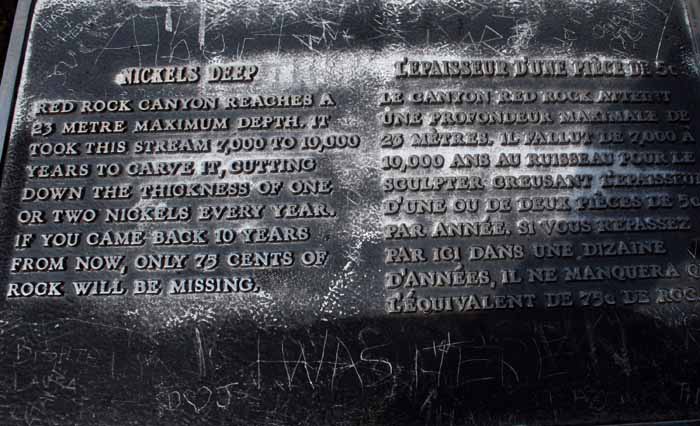 NICKELS DEEP
RED ROCK CANYON REACHES A
23 METRE MAXIMUM DEPTH. IT
TOOK THIS STREAM 7,000 TO 10,000
YEARS TO CARVE IT, CUTTING
DOWN THE THICKNESS OF ONE
OR TWO NICKELS EVERY YEAR.
IF YOU CAME BACK 10 YEARS
FROM NOW, ONLY 75 CENTS OF
ROCK WILL BE MISSING.
L'EPAISSEUR D'UNE PIÈCE DE 5¢
LE CANYON RED ROCK ATTEINT
UNE PROFONDEUR MAXIMALE DE
23 MÈTRES. IL FALLUT DE 7,000 À
10,000 ANS AU RUISSEAU POUR LE
SCULPTER CREUSANT L'EPAISSEUR
D'UNE OU DE DEUX PIÈCES DE 5¢
PAR ANNÉE. SI VOUS REPASSEZ
PAR ICI DANS UNE DIZAINE
D'ANNÉES, IL NE MANQUERA
L'ÉQUIVALENT DE 75¢ DE ROC
I WAS HERE